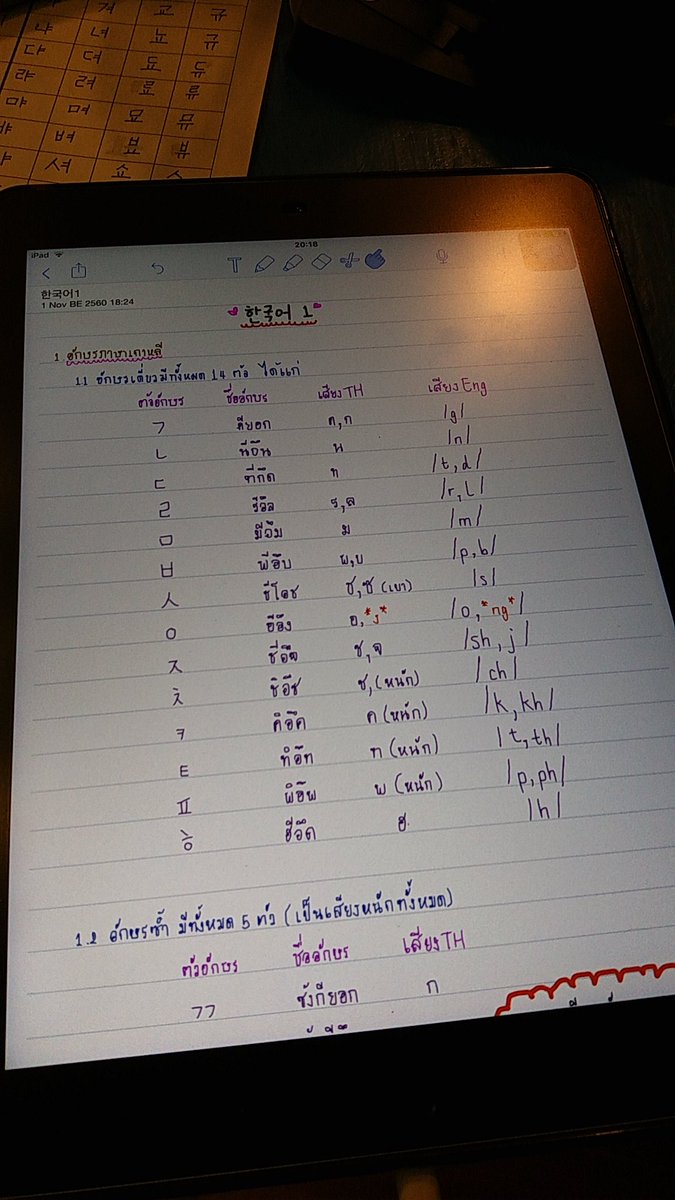 겨 교 규
냐 녀 뇨 뉴
댜 뎌 됴 듀
랴 려 료 류
먀 며 묘 뮤
뱌 벼 뵤 뷰
셔 쇼
iPad 20:18
T
한국어1
1 Nov BE 2560 18:24
한국어 1
1 อักษรภาษาเกาหลี
1.1 อักษรเดี่ยวมีทั้งหมด 14 ตัว ได้แก่
ตัวอักษร ชื่ออักษร เสียง TH เสียง Eng
ㄱ คียอก ค,ก /g/
ㄴ นีอึน น /n/
ㄷ ทีกึด ท /t,d/
ㄹ รีอึล ร,ล /r,l/
ㅁ มีอึม ม /m/
ㅂ พีอึบ พ,บ /p,b/
ㅅ ชีโอช ช,ซ (เบา) /s/
ㅇ อีอึง อ,*ง* /o,*ng*/
ㅈ ชีอึจ ช,จ /sh,j/
ㅊ ชิอึช ช,(หนัก) /ch/
ㅋ คิอึค ค (หนัก) /k,kh/
ㅌ ทิอึท ท (หนัก) /t,th/
ㅍ พิอึพ พ (หนัก) /p,ph/
ㅎ ฮีอึด ฮ /h/
1.2 อักษรซ้ำ มีทั้งหมด 5 ตัว (เป็นเสียงหนักทั้งหมด)
ตัวอักษร ชื่ออักษร เสียง TH
ㄲ ซังกียอก ก